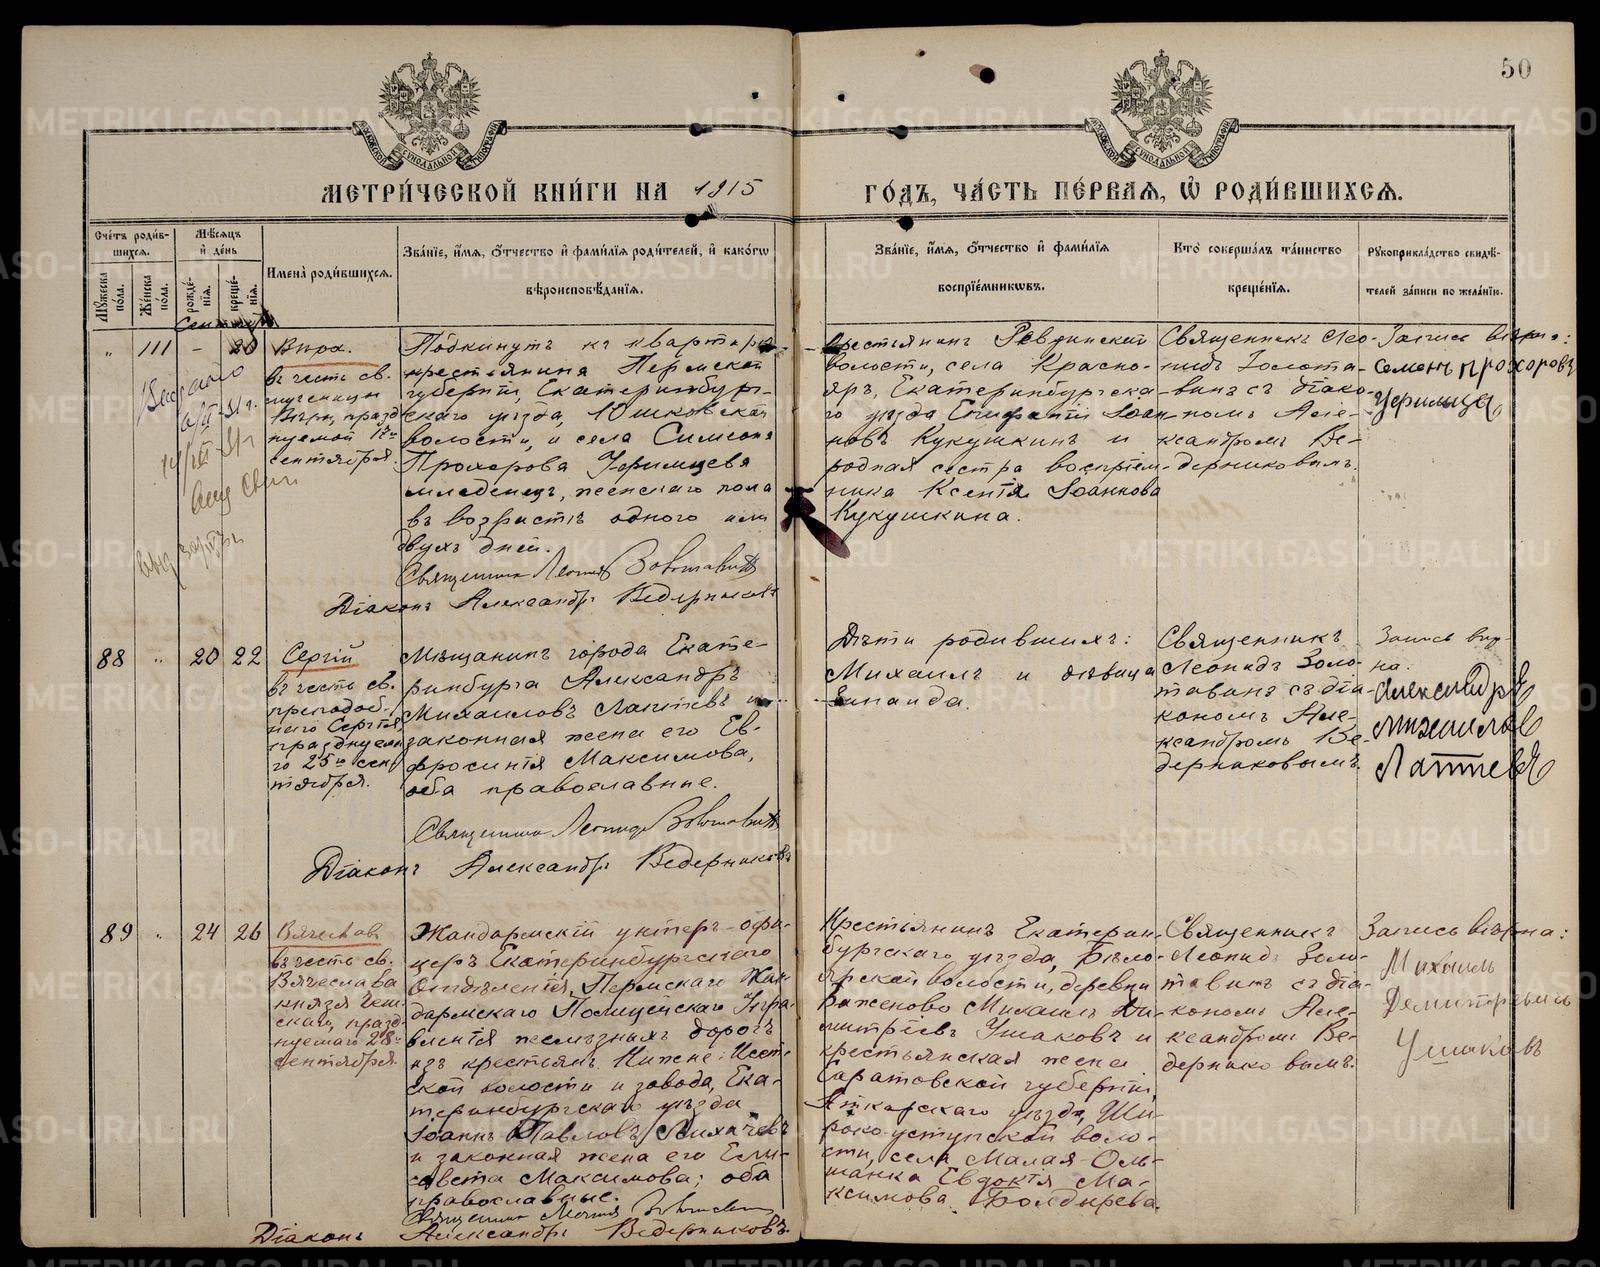 50
МЕТРИ́ЧЕСКОЙ КНИ́ГИ НА 1915 ГО́ДЪ, ЧА́СТЬ ПЕ́РВАѦ, Ѡ҆ РОДИ́ВШИХСѦ.
Счетъ родив-
шихся.
Мужеска пола.
Женска пола.
Мѣсяцъ и день
рожде-
нія.
креще-
нія.
Имена родившихся.
Званіе, имя, отчество и фамилія родителей, и какогѡ
вѣроисповѣданія.
Званіе, имя, отчество и фамилія
воспріемникѡвъ.
Кто совершалъ таинство
крещенія.
Рукоприкладство свидѣ-
телей записи по желанію.
Сентябрь
" 111 - 20
Вѣра.
въ честь св.
мученицы
Вѣры, празд-
нуемой 17го
сентября.
Подкинутъ къ квартирѣ
крестьянина Пермской
губерніи, Екатеринбург-
скаго уѣзда, Юшковской
волости, и села Симеона
Прохорова Уфимцева
младенецъ, женскаго пола
въ возрастѣ одного или
двухъ дней.
Священникъ Леонидъ Золотавинъ
Діаконъ Александръ Ведерниковъ
крестьянинъ Ревдинской
волости, села Красно-
яръ, Екатеринбургска-
го уѣзда Іоан-
новъ Кукушкинъ и
родная сестра воспріем-
ника Ксенія Іоаннова
Кукушкина.
Священникъ Лео-
нидъ Золота-
винъ съ діако-
номъ Але-
ксандромъ Ве-
дерниковымъ.
Запись вѣрна:
Семенъ Прохоровъ
Уфимцевъ
88 " 20 22
Сергій
въ честь св.
преподоб-
наго Сергія,
празднуема-
го 25го сен-
тября.
Мѣщанинъ города Екате-
ринбурга Александръ
Михаиловъ Лаптевъ и
законная жена его Ев-
фросинія Максимова,
оба православные.
Священникъ Леонидъ Золотавинъ
Діаконъ Александръ Ведерниковъ
Дѣти родившихъ:
Михаилъ и дѣвица
Зинаида.
Священникъ
Леонидъ Золо-
тавинъ съ діа-
кономъ Але-
ксандромъ Ве-
дерниковымъ.
Запись вѣр-
на:
Александръ
Михаиловъ
Лаптевъ
89 " 24 26
Вячеслав
въ честь св.
Вячеслава
князя Чеш-
скаго, празд-
нуемаго 28го
сентября.
Жандармскій унтеръ-офи-
церъ Екатеринбургскаго
Отдѣленія, Пермскаго Жан-
дармскаго Полицейскаго Упра-
вленія желѣзныхъ дорогъ
изъ крестьянъ Нижне-Исет-
ской волости и завода, Ека-
теринбургскаго уѣзда
Іоаннъ Павловъ Лихачевъ
и законная жена его Ели-
савета Максимова; оба
православные.
Священникъ Леонидъ Золотавинъ
Діаконъ Александръ Ведерниковъ.
Крестьянинъ Екатерин-
бургскаго уѣзда, Бѣло-
ярской волости, деревни
Баженово Михаилъ Ди-
митріевъ Ушаковъ и
крестьянская жена
Саратовской губерніи,
Аткарскаго уѣзда, Ши-
роко-уступской воло-
сти, села Малая-Оль-
шанка Евдокія Ма-
ксимова Болдырева.
Священникъ
Леонидъ Золо-
тавинъ съ діа-
кономъ Але-
ксандромъ Ве-
дерниковымъ.
Запись вѣрна:
Михаилъ
Димитріевичъ
Ушаковъ
METRIKI.GASO-URAL.RU